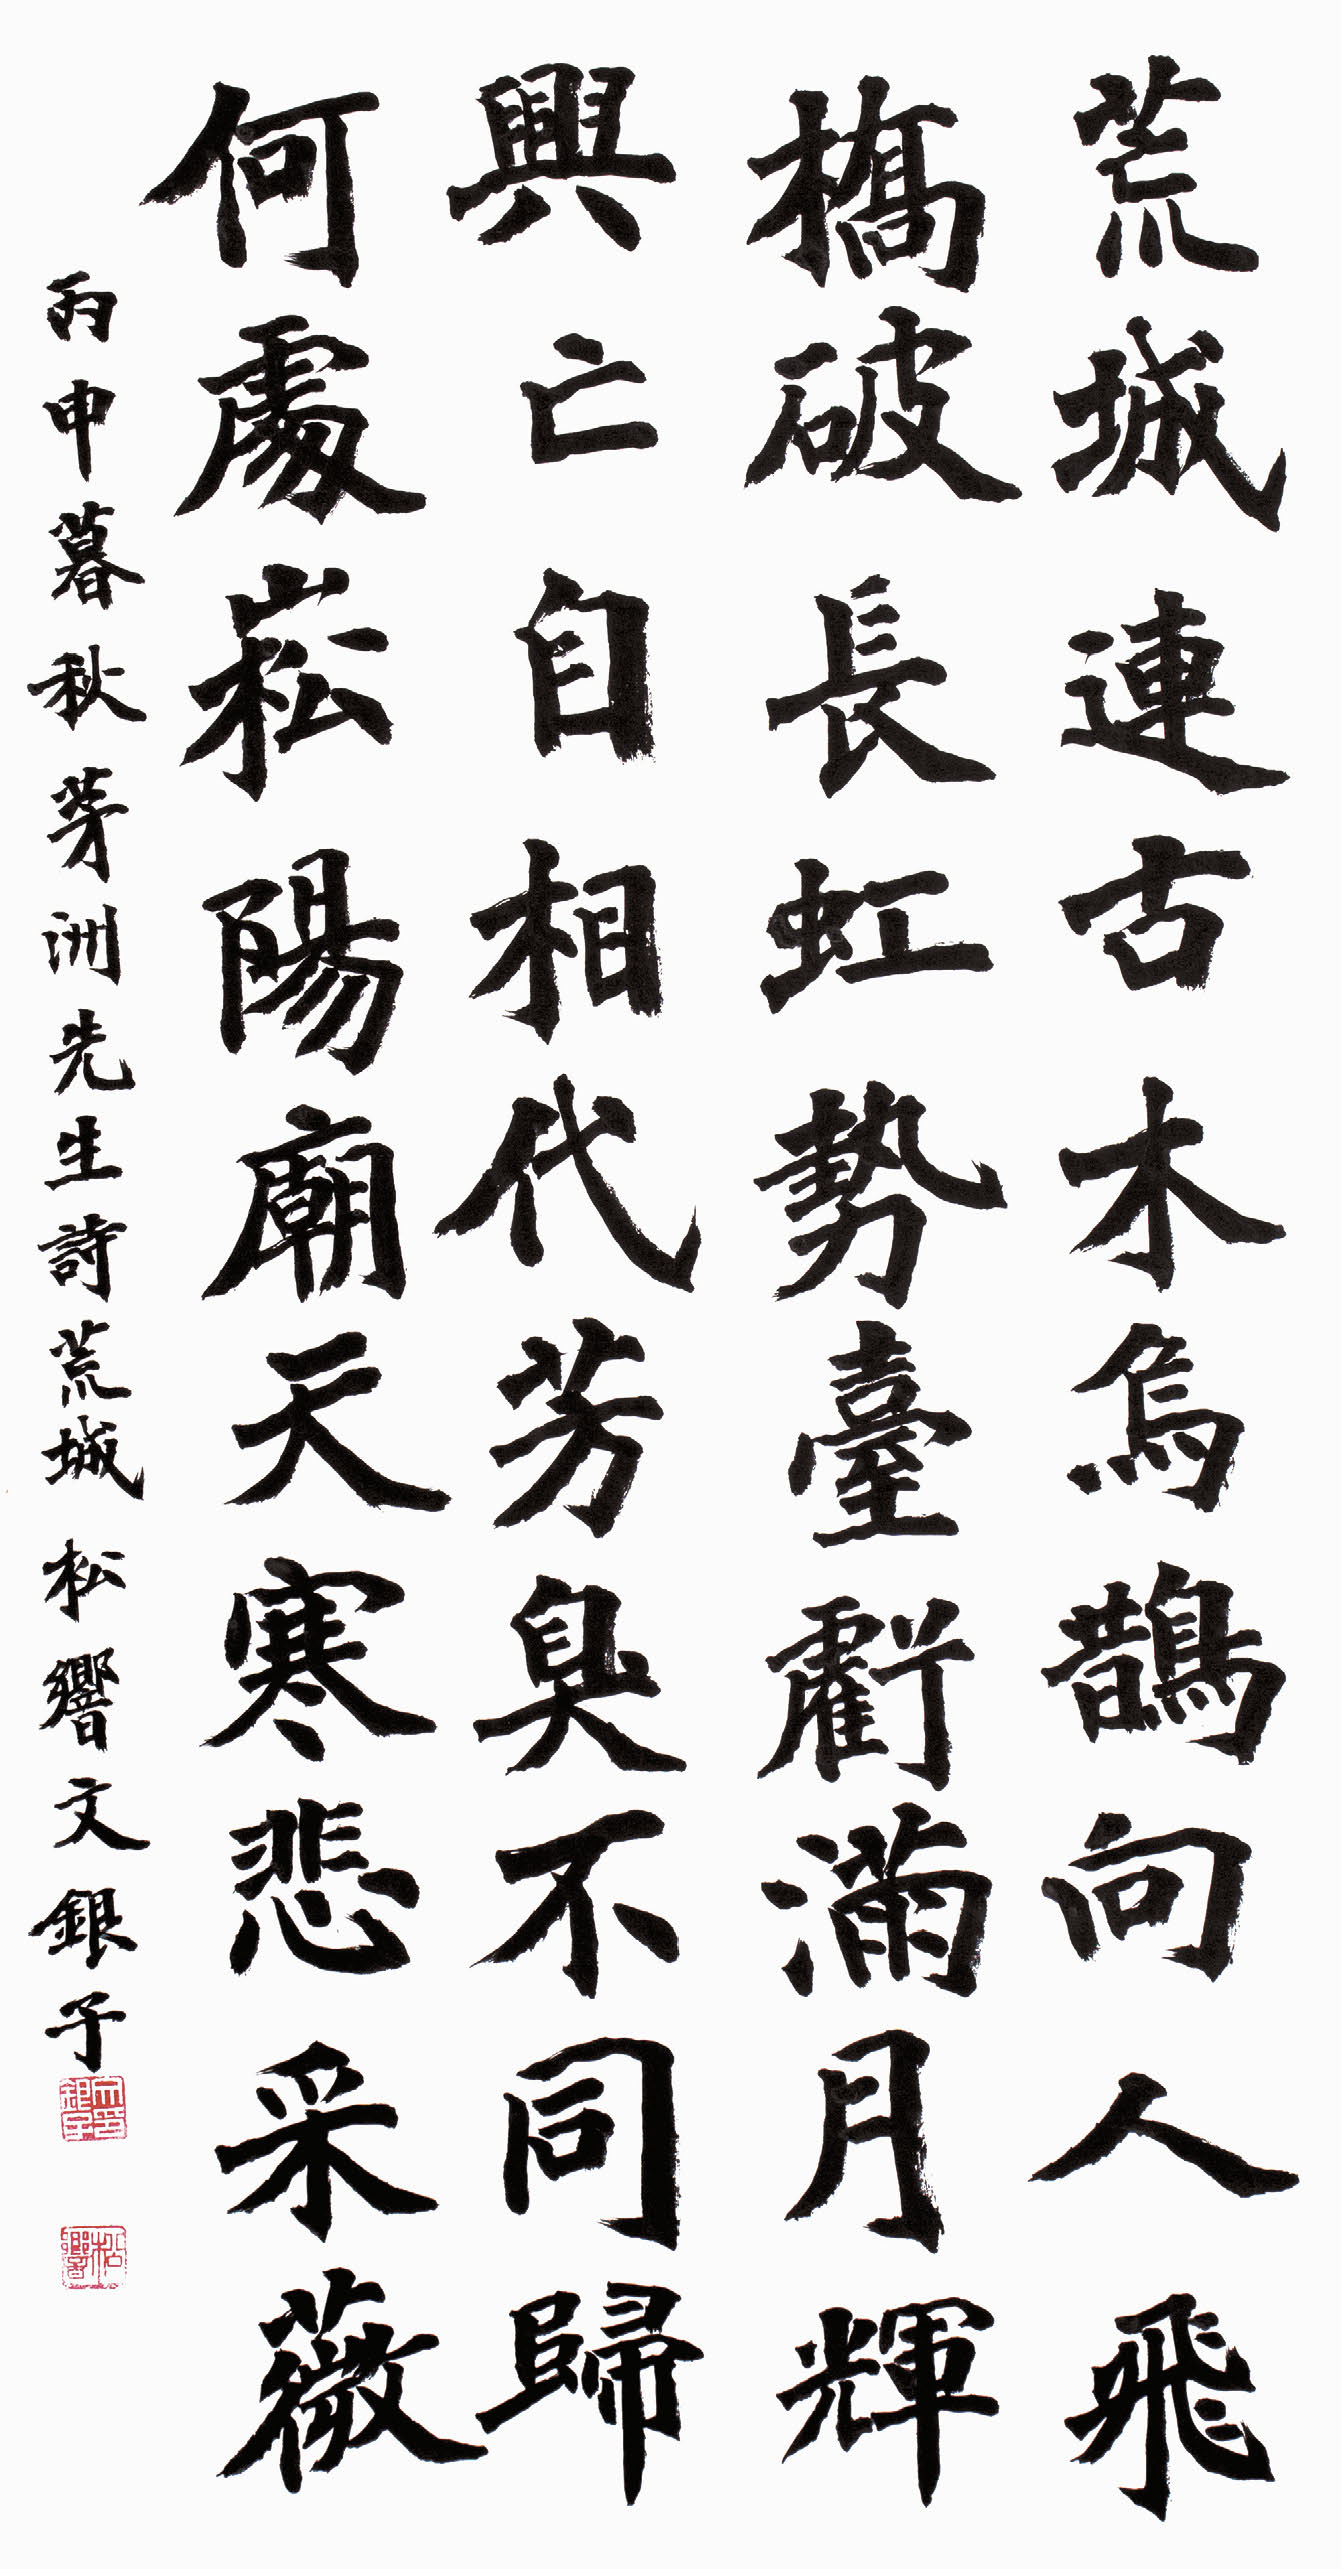 荒城連古木烏鵲向人飛
橋破長虹勢臺虧滿月輝
興亡自相代芳臭不同歸
何處崧陽廟天寒悲采薇
丙申暮秋茅洲先生詩荒城 松響文銀子
文印銀子
松響